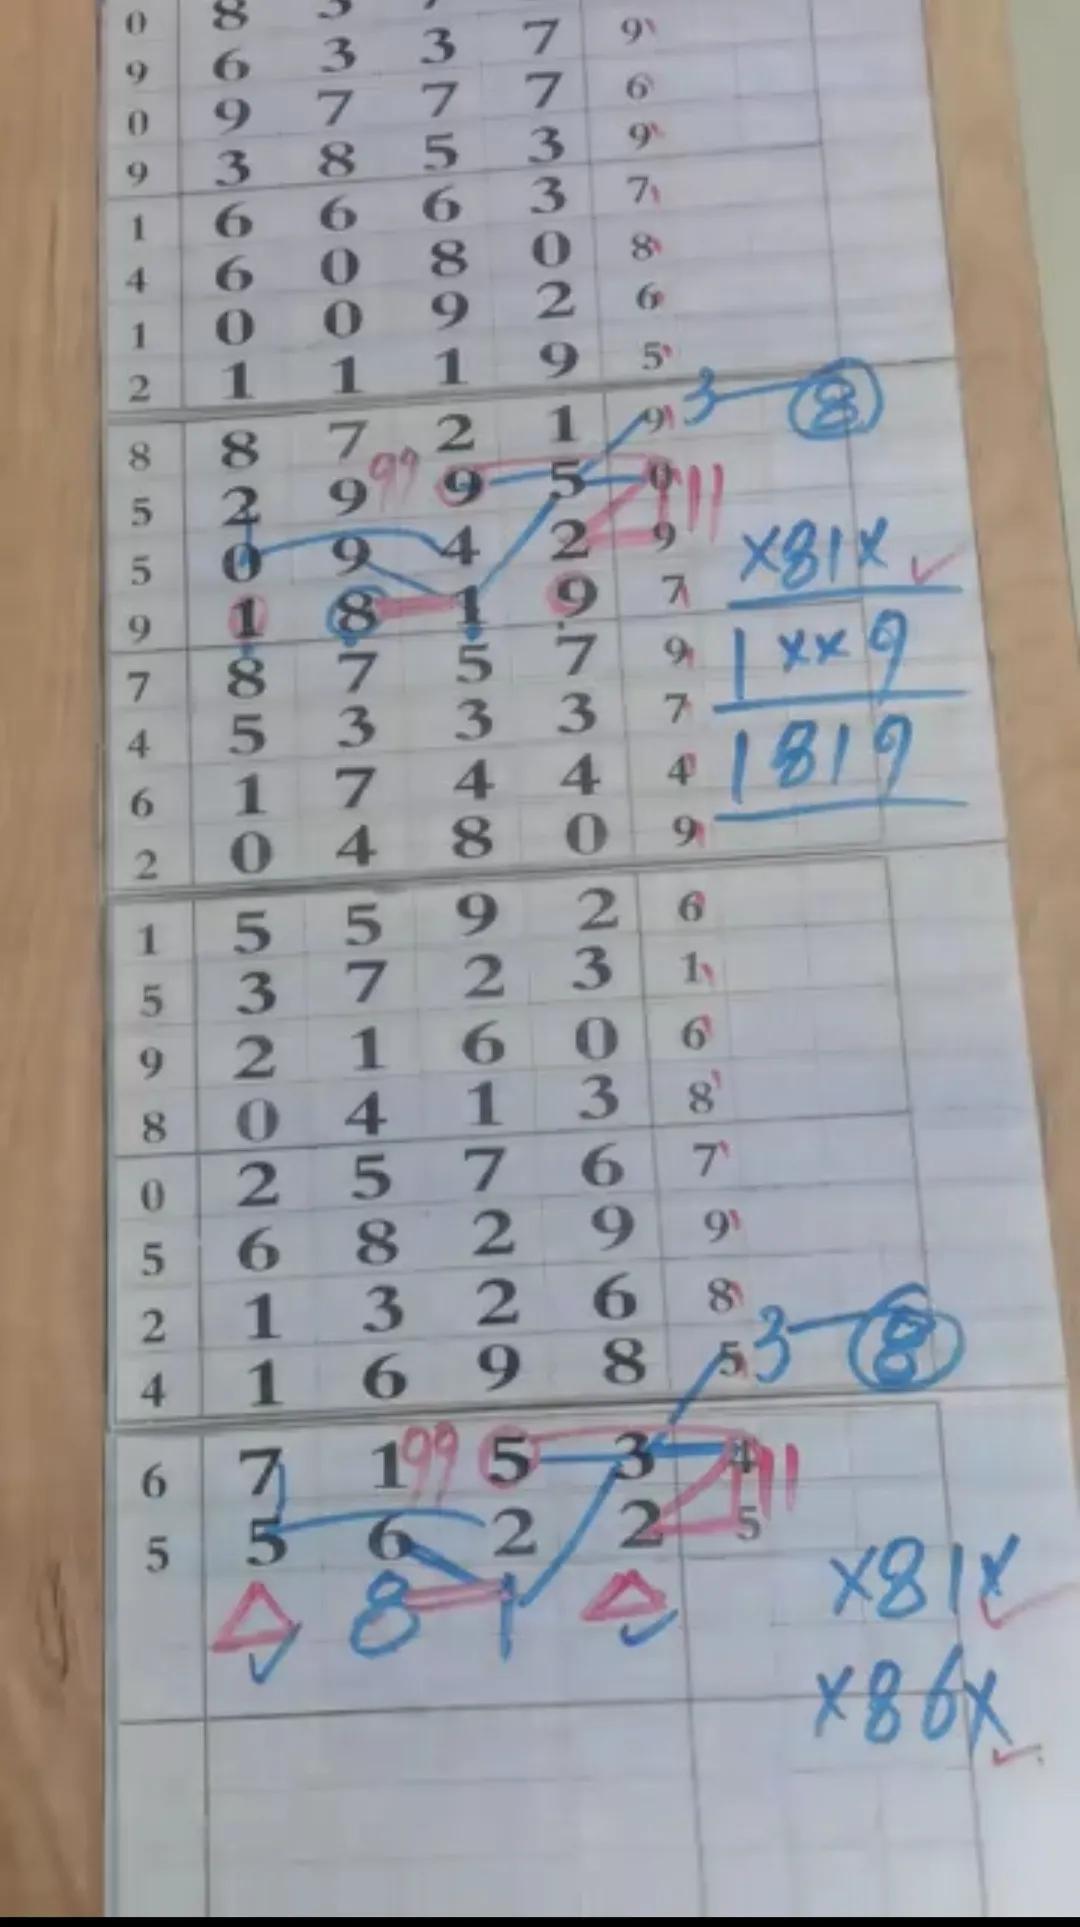 0 8 3
9 6 3 3 7 9
0 9 7 7 7 6
9 3 8 5 3 9
1 6 6 6 3 7
4 6 0 8 0 8
1 0 0 9 2 6
2 1 1 1 9 5
8 8 7 2 1 9 3 8
5 2 9 99 9 5 0 11
5 0 9 4 2 9 ×81×
9 1 8 1 9 7
7 8 7 5 7 9 1××9
4 5 3 3 3 7
6 1 7 4 4 4 1819
2 0 4 8 0 9
1 5 5 9 2 6
5 3 7 2 3 1
9 2 1 6 0 6
8 0 4 1 3 8
0 2 5 7 6 7
5 6 8 2 9 9
2 1 3 2 6 8
4 1 6 9 8 5 3 8
6 7 1 99 5 3 4 11
5 5 6 2 2 5
8 1 ×81×
×86×